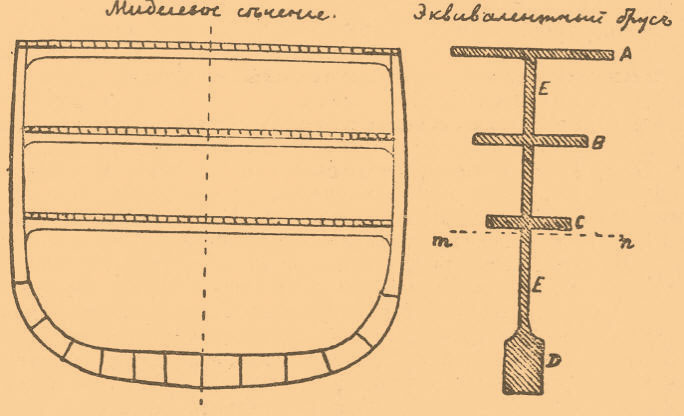 Миделевое сѣченіе.
Эквивалентный брусъ
A
E
B
C
m n
E
D